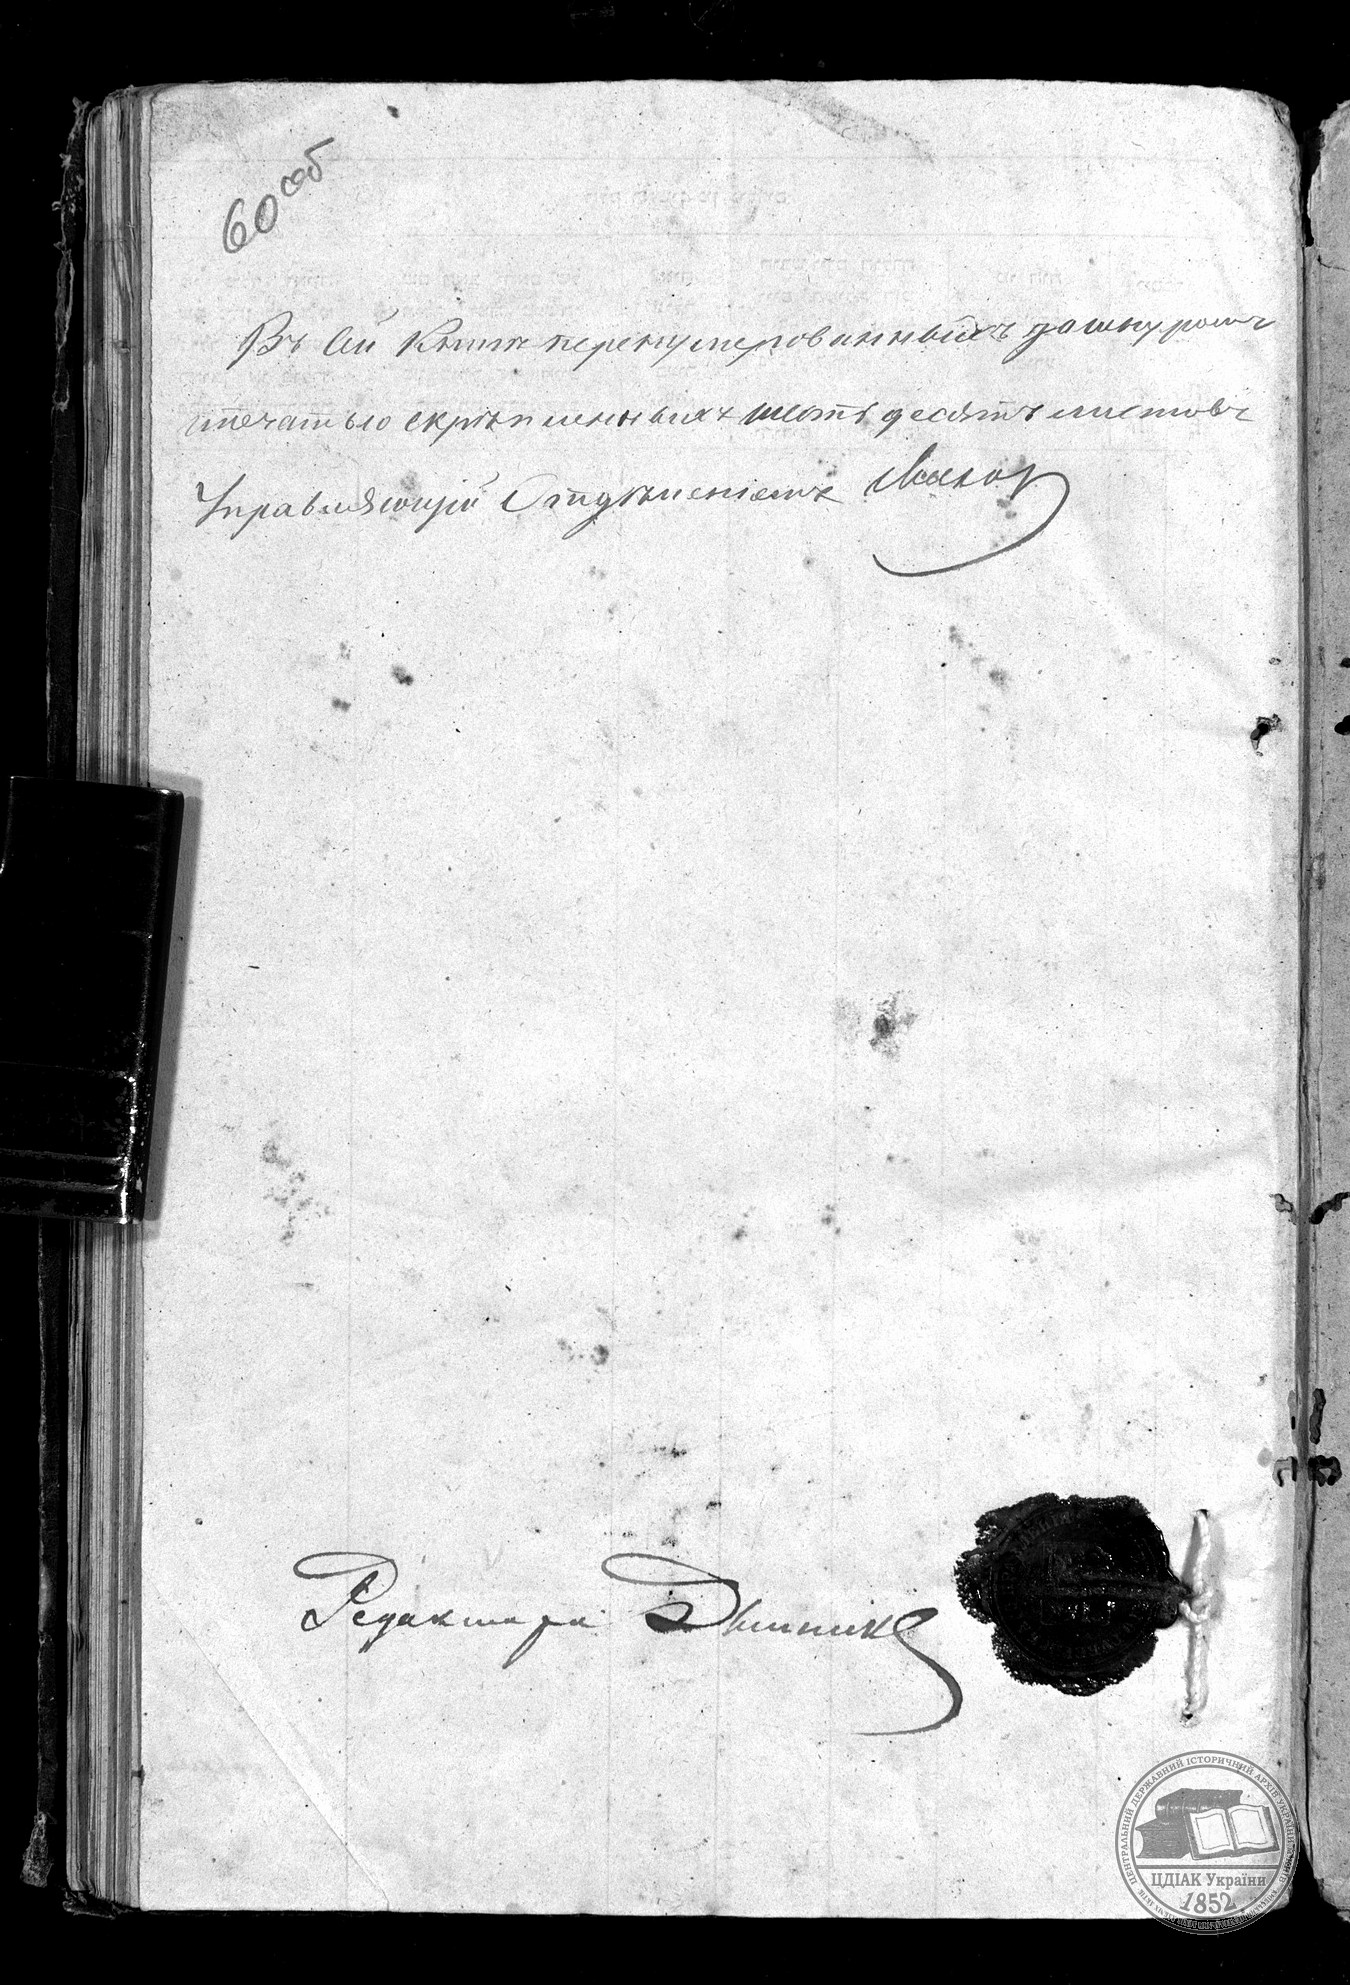 60 об
Въ сей Книгѣ перенумерованныхъ за шнуромъ
и печатью скрѣпленныхъ шестьдесятъ листовъ
Управляющій Отдѣленіемъ
Редакторъ
ЦЕНТРАЛЬНИЙ ДЕРЖАВНИЙ ІСТОРИЧНИЙ АРХІВ УКРАЇНИ
ЦДІАК України
1852